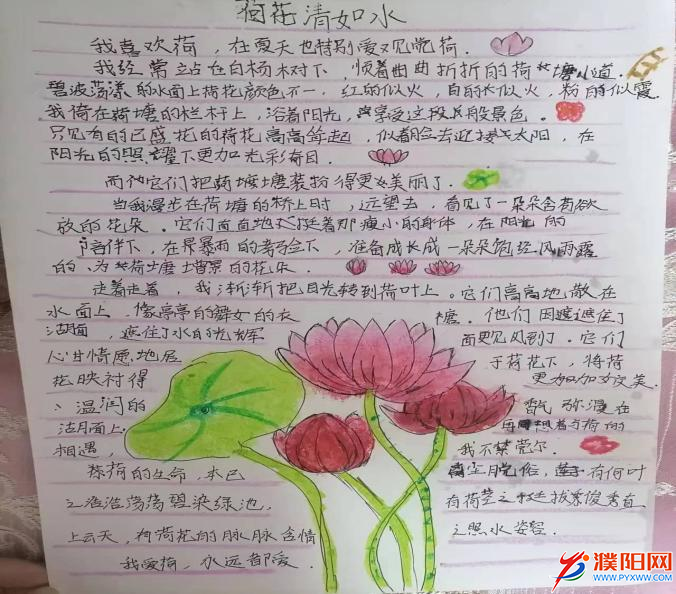 荷花清如水
我喜欢荷，在夏天也特别爱观赏荷。
我经常站在白杨树下，顺着曲曲折折的荷塘小道。
碧波荡漾的水面上荷花颜色不一，红的似火，白的似火，粉的似霞。
我倚在荷塘的栏杆上，沿着阳光，享受这般般景色。
只见有的已盛花的荷花高高耸起，似着脸去迎接太阳，在
阳光的照耀下更加光彩夺目。
而他它们把荷塘装扮得更美丽了。
当我漫步在荷塘的桥上时，远望去，看见了一朵朵含有欲
放的花朵。它们直直地挺着那瘦小的身体，在阳光的
陪伴下，在风暴雨的考验下，准备成长成一朵朵饱经风雨露
的、为荷塘增景的花朵。
走着走着，我渐渐把目光转到荷叶上。它们高高地散在
水面上，像亭亭的舞女的衣裙。他们因遮住了
湖面，遮住了水的光辉 面更见风到了。它们
心甘情愿地居于荷花下，将荷
花映衬得更加加女美。
、温润的 香气弥漫在
洁月面上. 着与荷的
相遇， 我不禁莞尔。
荷的生命，本已 脱俗，有何叶
之浩浩荡荡碧染绿池， 有荷茎之挺拔秀直
上云天，有荷花的脉脉含情 之照水姿容。
我爱荷，永远都爱。
濮阳网
WWW.PYXWW.COM